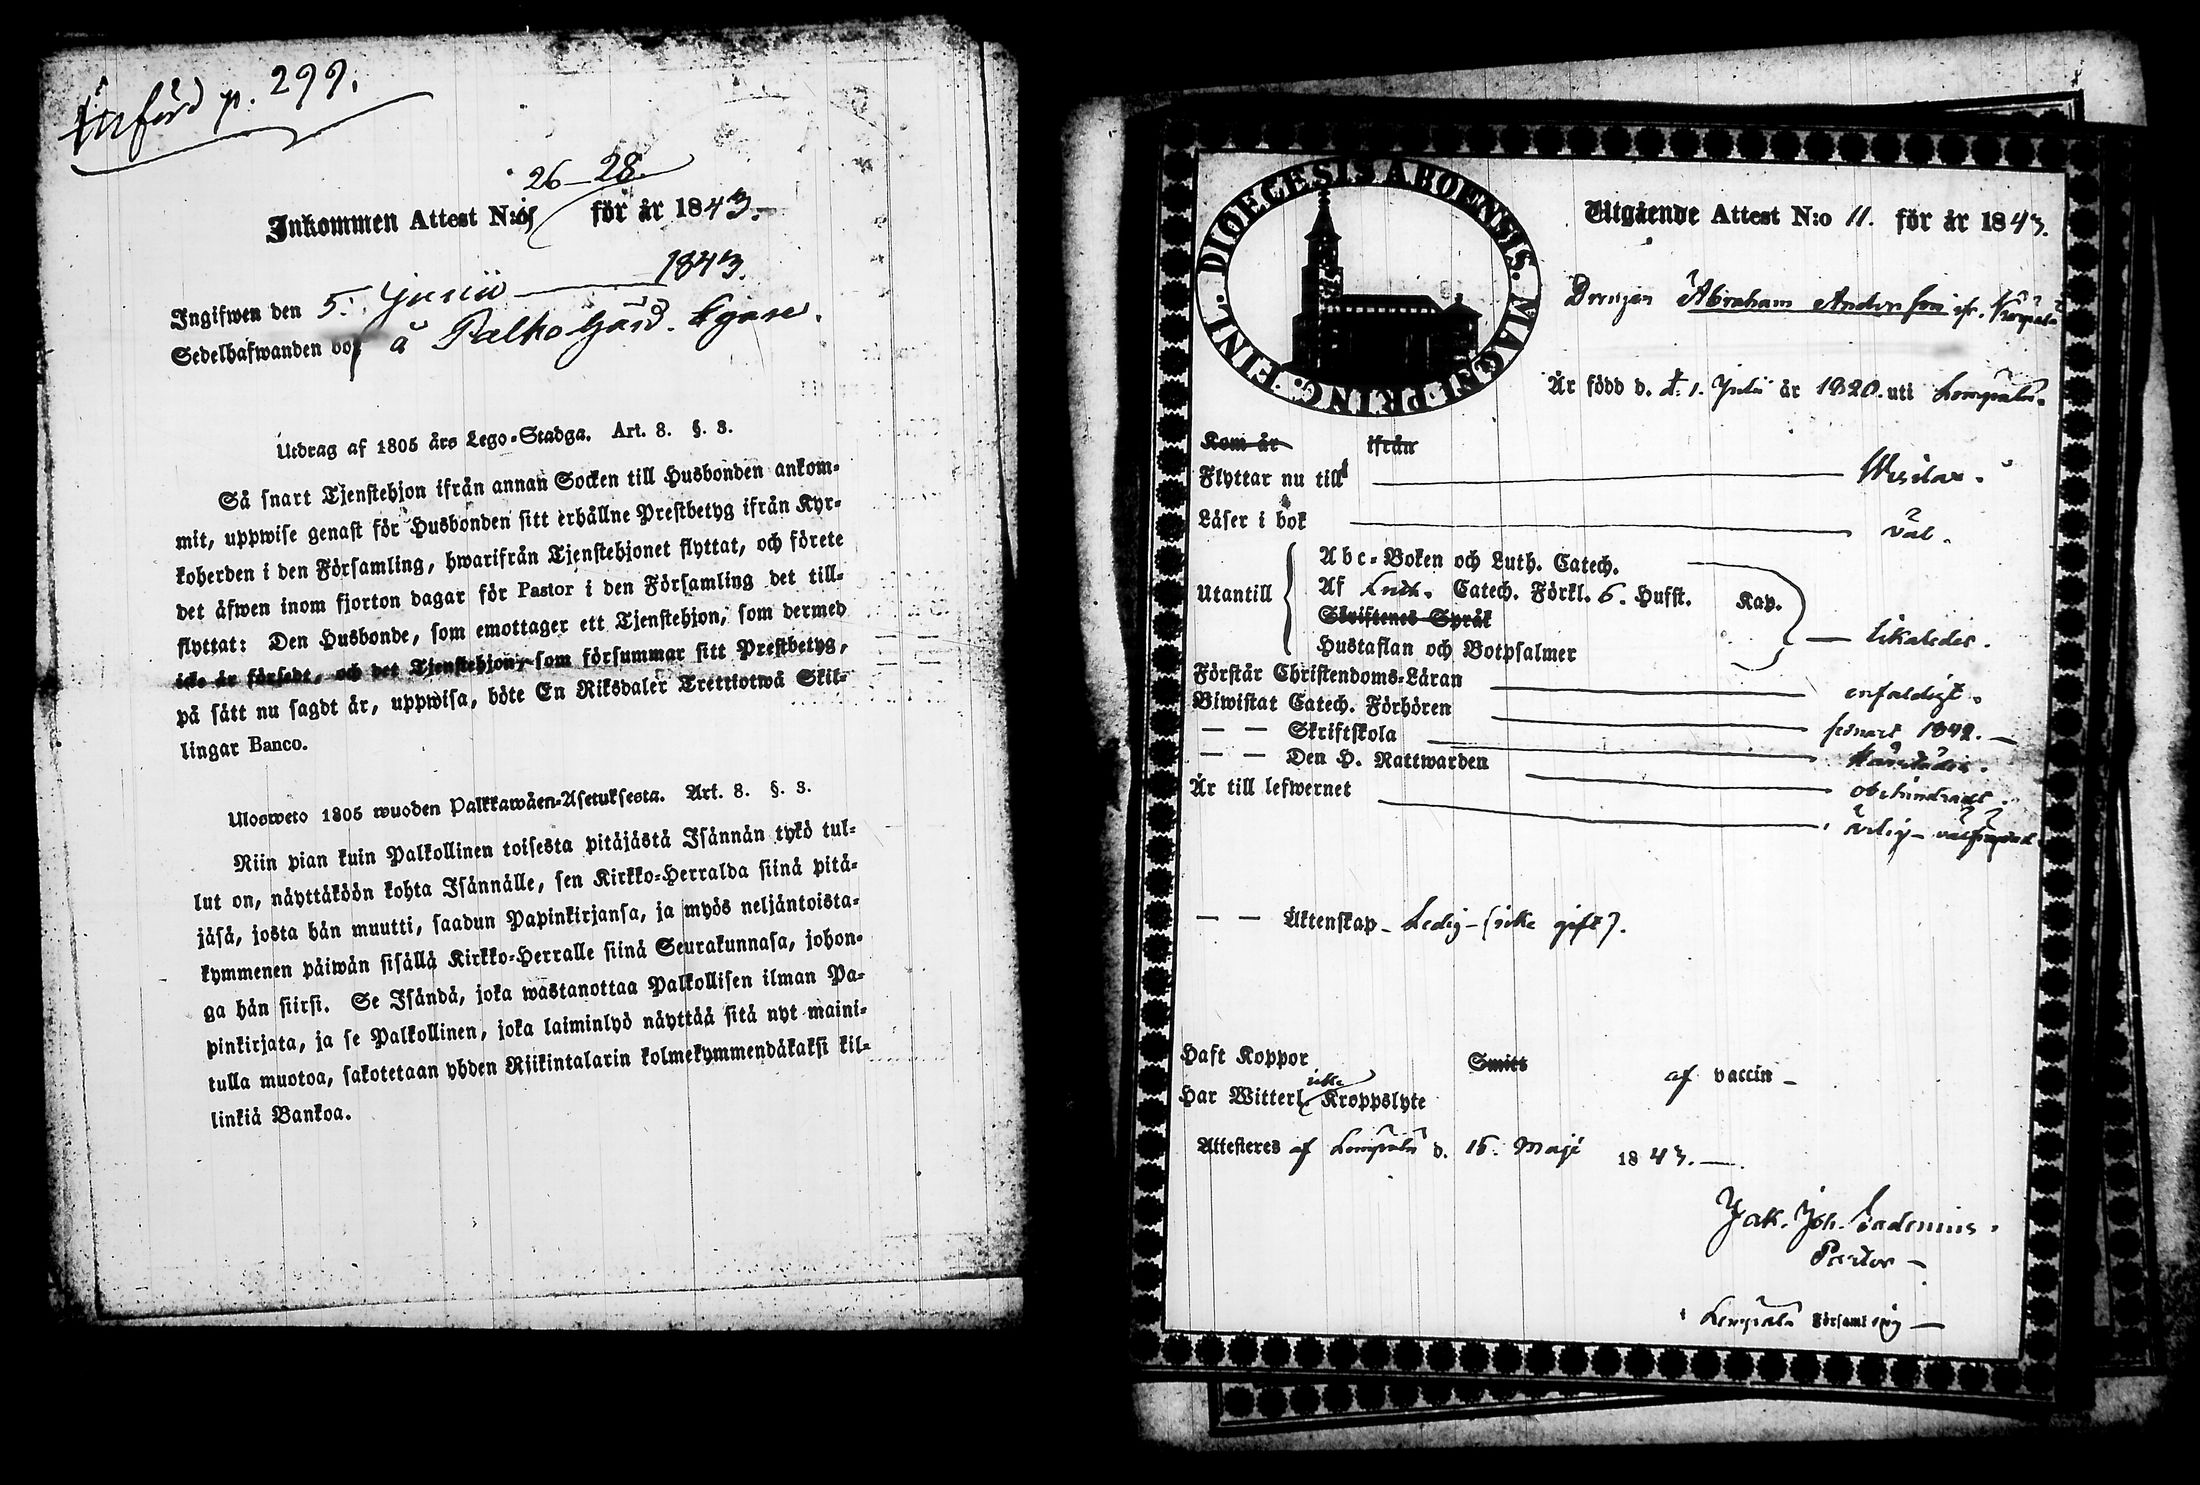 Införd p. 299.
26-28.
Inkommen Attest N:o för år 1843.
Ingifwen den 5. Junii 1843.
Sedelhafwanden bor å Palho Gård. Egare.
Utdrag af 1805 års Lego-Stadga. Art. 8. §. 3.
Så snart Tjenstehjon ifrån annan Socken till Husbonden ankom-
mit, uppwise genast för Husbonden sitt erhållne Prestbetyg ifrån Kyr-
koherden i den Församling, hwarifrån Tjenstehjonet flyttat, och förete
det äfwen inom fjorton dagar för Pastor i den Församling det till-
flyttat: Den Husbonde, som emottager ett Tjenstehjon, som dermed
icke är försedt, och det Tjenstehjon, som försummar sitt Prestbetyg,
på sätt nu sagdt är, uppwisa, böte En Riksdaler Trettiotwå Skil-
lingar Banco.
Ulosweto 1805 wuoden Palkkawäen-Asetuksesta. Art. 8. §. 3.
Niin pian kuin Palkollinen toisesta pitäjästä Isännän tykö tul-
lut on, näyttäköön kohta Isännälle, sen Kirkko-Herralda siinä pitä-
jäsä, josta hän muutti, saadun Papinkirjansa, ja myös neljäntoista-
kymmenen päiwän sisällä Kirkko-Herralle siinä Seurakunnasa, johon-
ga hän siirsi. Se Isändä, joka wastanottaa Palkollisen ilman Pa-
pinkirjata, ja se Palkollinen, joka laiminlyö näyttää sitä nyt maini-
tulla muotoa, sakotetaan yhden Riikintalarin kolmekymmendäkaksi kil-
linkiä Bankoa.
FINL. DIOECESIS ABOENSIS. MAGN. PRINC.
Utgående Attest N:o 11. för år 1843.
Drengen Abraham Andersson ifr.
Är född d. 1. Julii år 1820. uti Lempälä.
Kom år ifrån
Flyttar nu till Wesilax.
Läser i bok väl.
Abc-Boken och Luth. Catech.
Utantill Af Luth. Catech. Förkl. 6. Hufst. Kap.
Skriftenes Språk
Hustaflan och Botpsalmer likaledes.
Förstår Christendoms-Läran enfaldigt.
Biwistat Catech. Förhören senast 1842.
— — Skriftskola
— — Den H. Nattwarden obehindradt.
Är till lefwernet ärlig - välfrejdad.
— — Äktenskap - Ledig - (icke gift).
Haft Koppor Smitt af vaccin -
Har Witterl. icke Kroppslyte
Attesteres af Lempälä d. 15. Maji 1843.
Jak. Joh. Ladenius.
Pastor -
i Lempälä Församling -